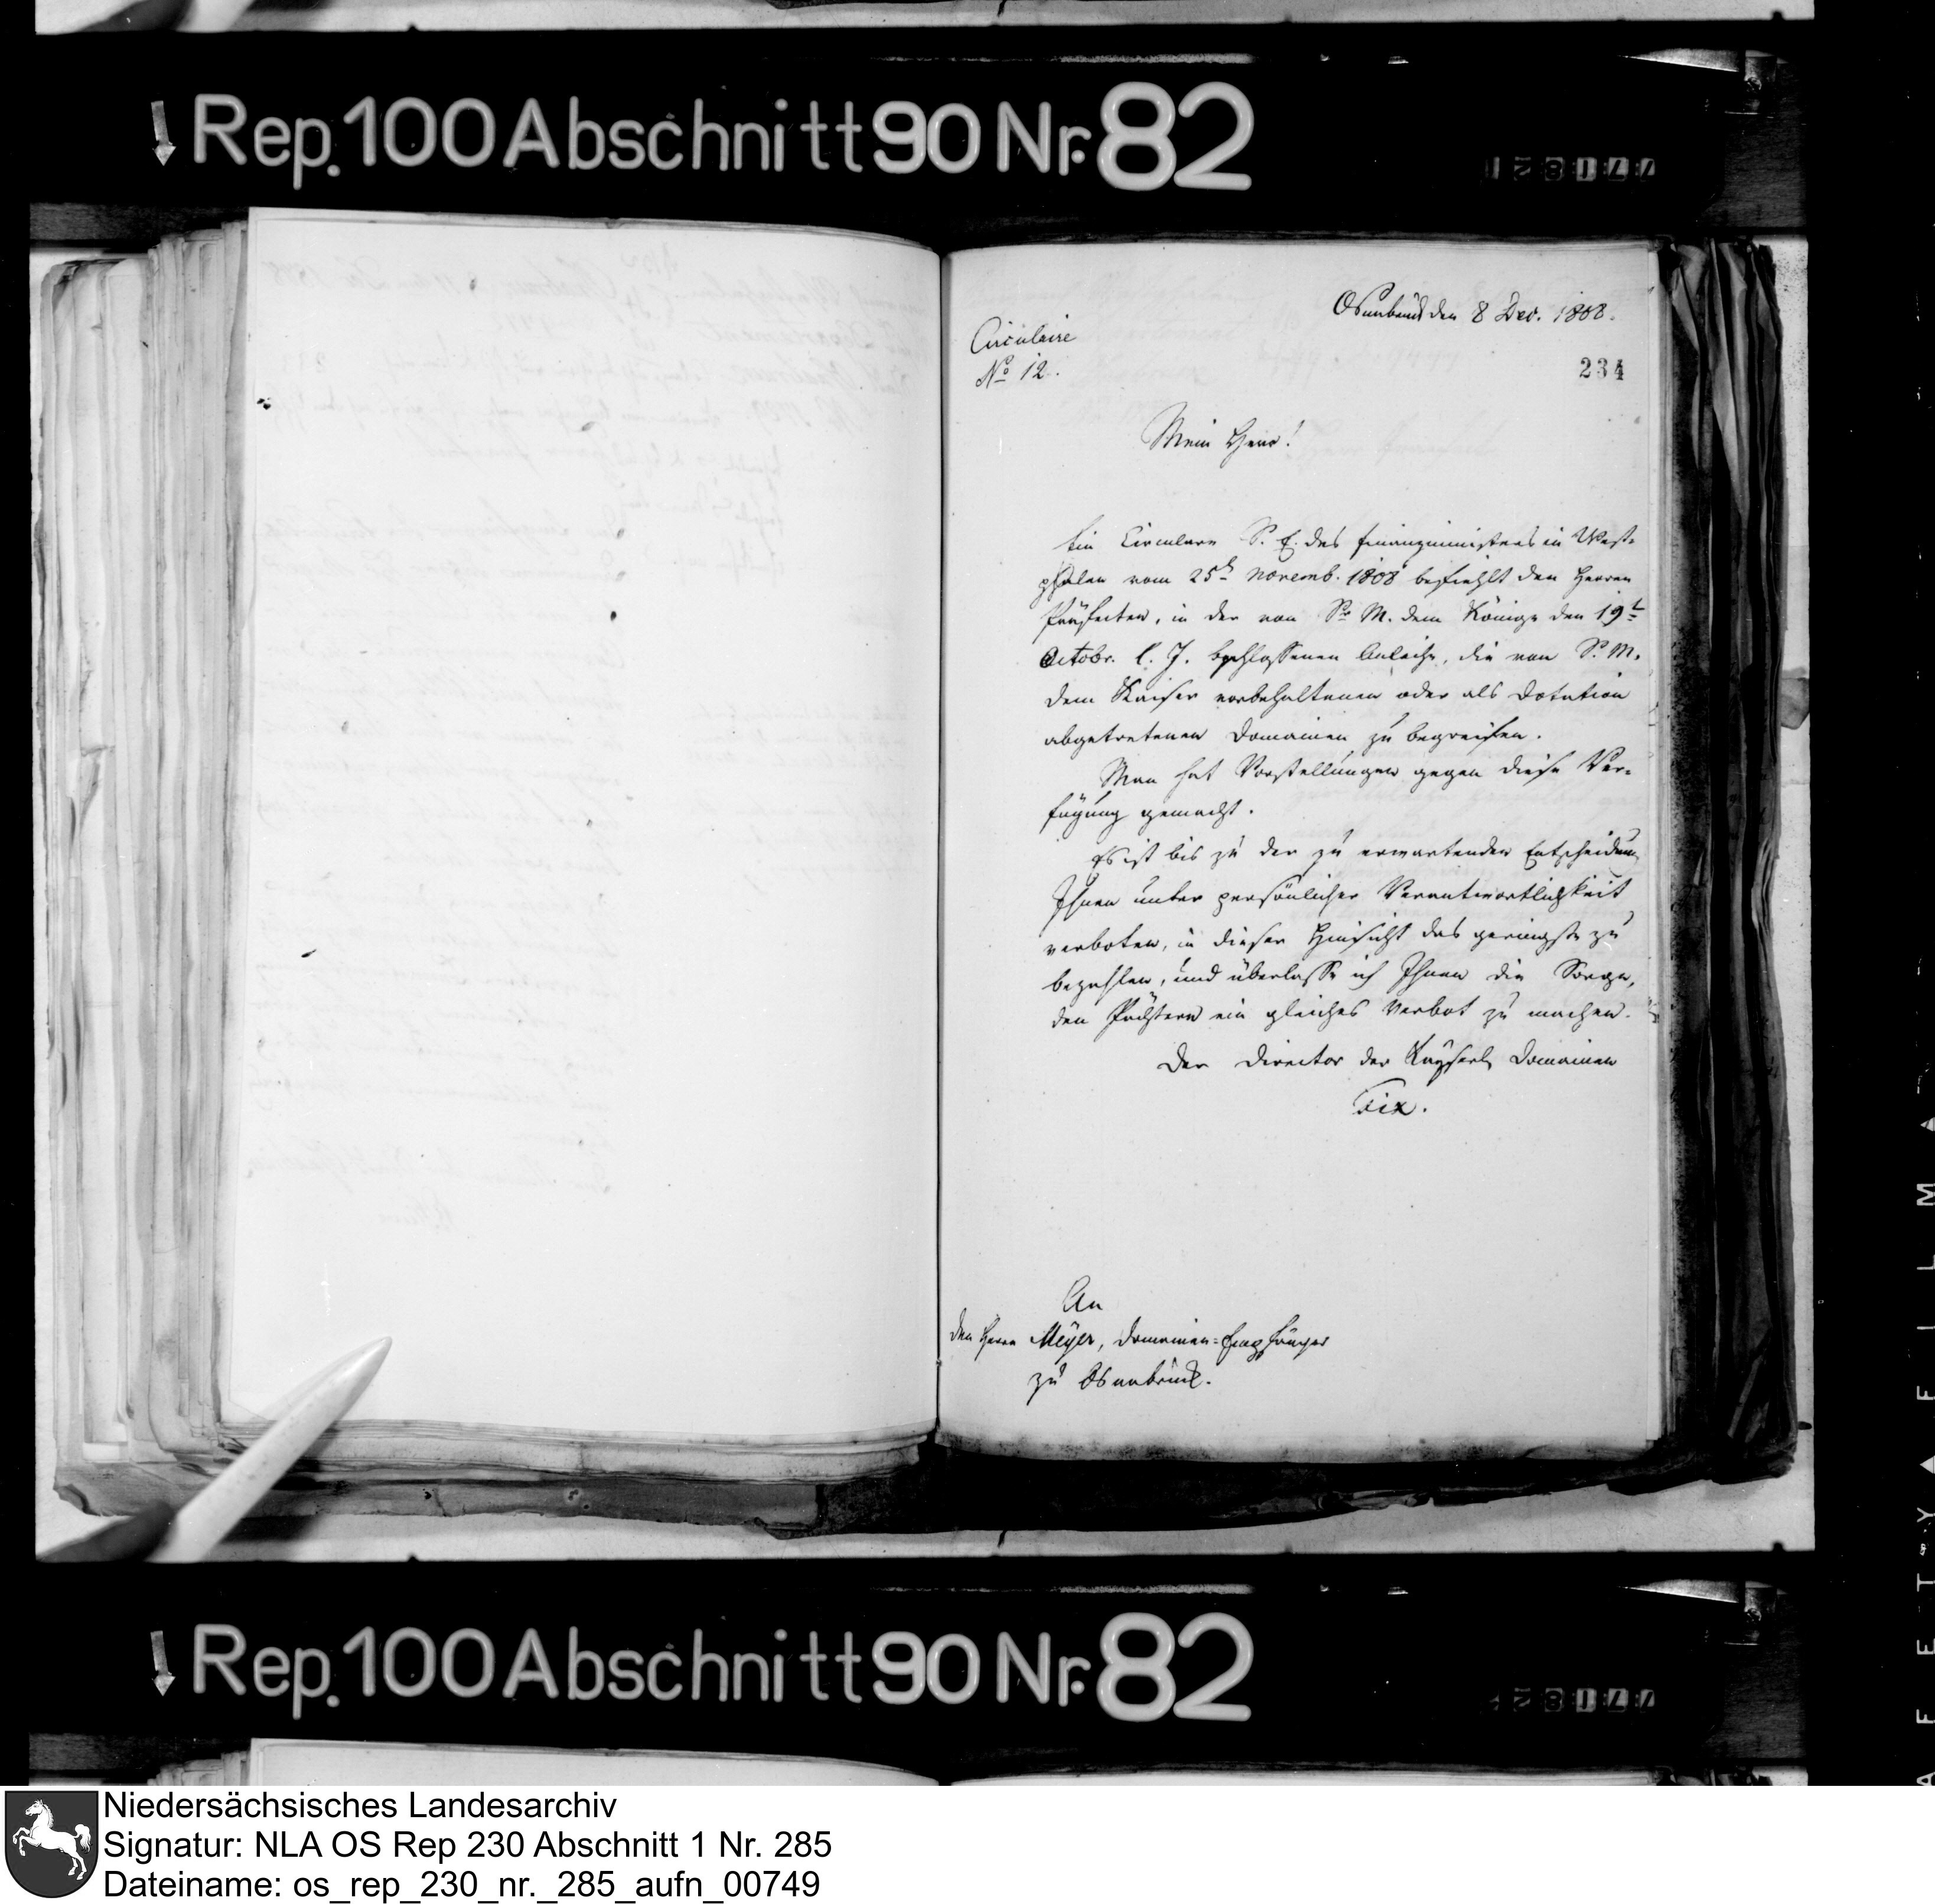 Rep. 100 Abschnitt 90 Nr. 82
Osnabrück den 8 Dec. 1808.
Circulaire
No 12.
234
Mein Herr!
Ein Circulare S. E. des Finanzministers in West-
phalen vom 25t Novemb. 1808 befiehlt den Herren
Präfecten, in der von Sr M. dem Könige den 19t
Octobr. l. J. beschlossenen Anleihe, die von Sr M.
dem Kaiser vorbehaltenen oder als Dotation
abgetretenen Domainen zu begreifen.
Man hat Vorstellungen gegen diese Ver-
fügung gemacht.
Es ist bis zu der zu erwartenden Entscheidung
Ihnen unter persönlicher Verantwortlichkeit
verboten, in dieser Hinsicht das geringste zu
bezahlen, und überlasse ich Ihnen die Sorge,
den Pächtern ein gleiches Verbot zu machen.
Der Director der Kayserl. Domainen
Fix.
An
den Herrn Meyer, Domainen-Empfänger
zu Osnabrück.
Rep. 100 Abschnitt 90 Nr. 82
Niedersächsisches Landesarchiv
Signatur: NLA OS Rep 230 Abschnitt 1 Nr. 285
Dateiname: os_rep_230_nr._285_aufn_00749